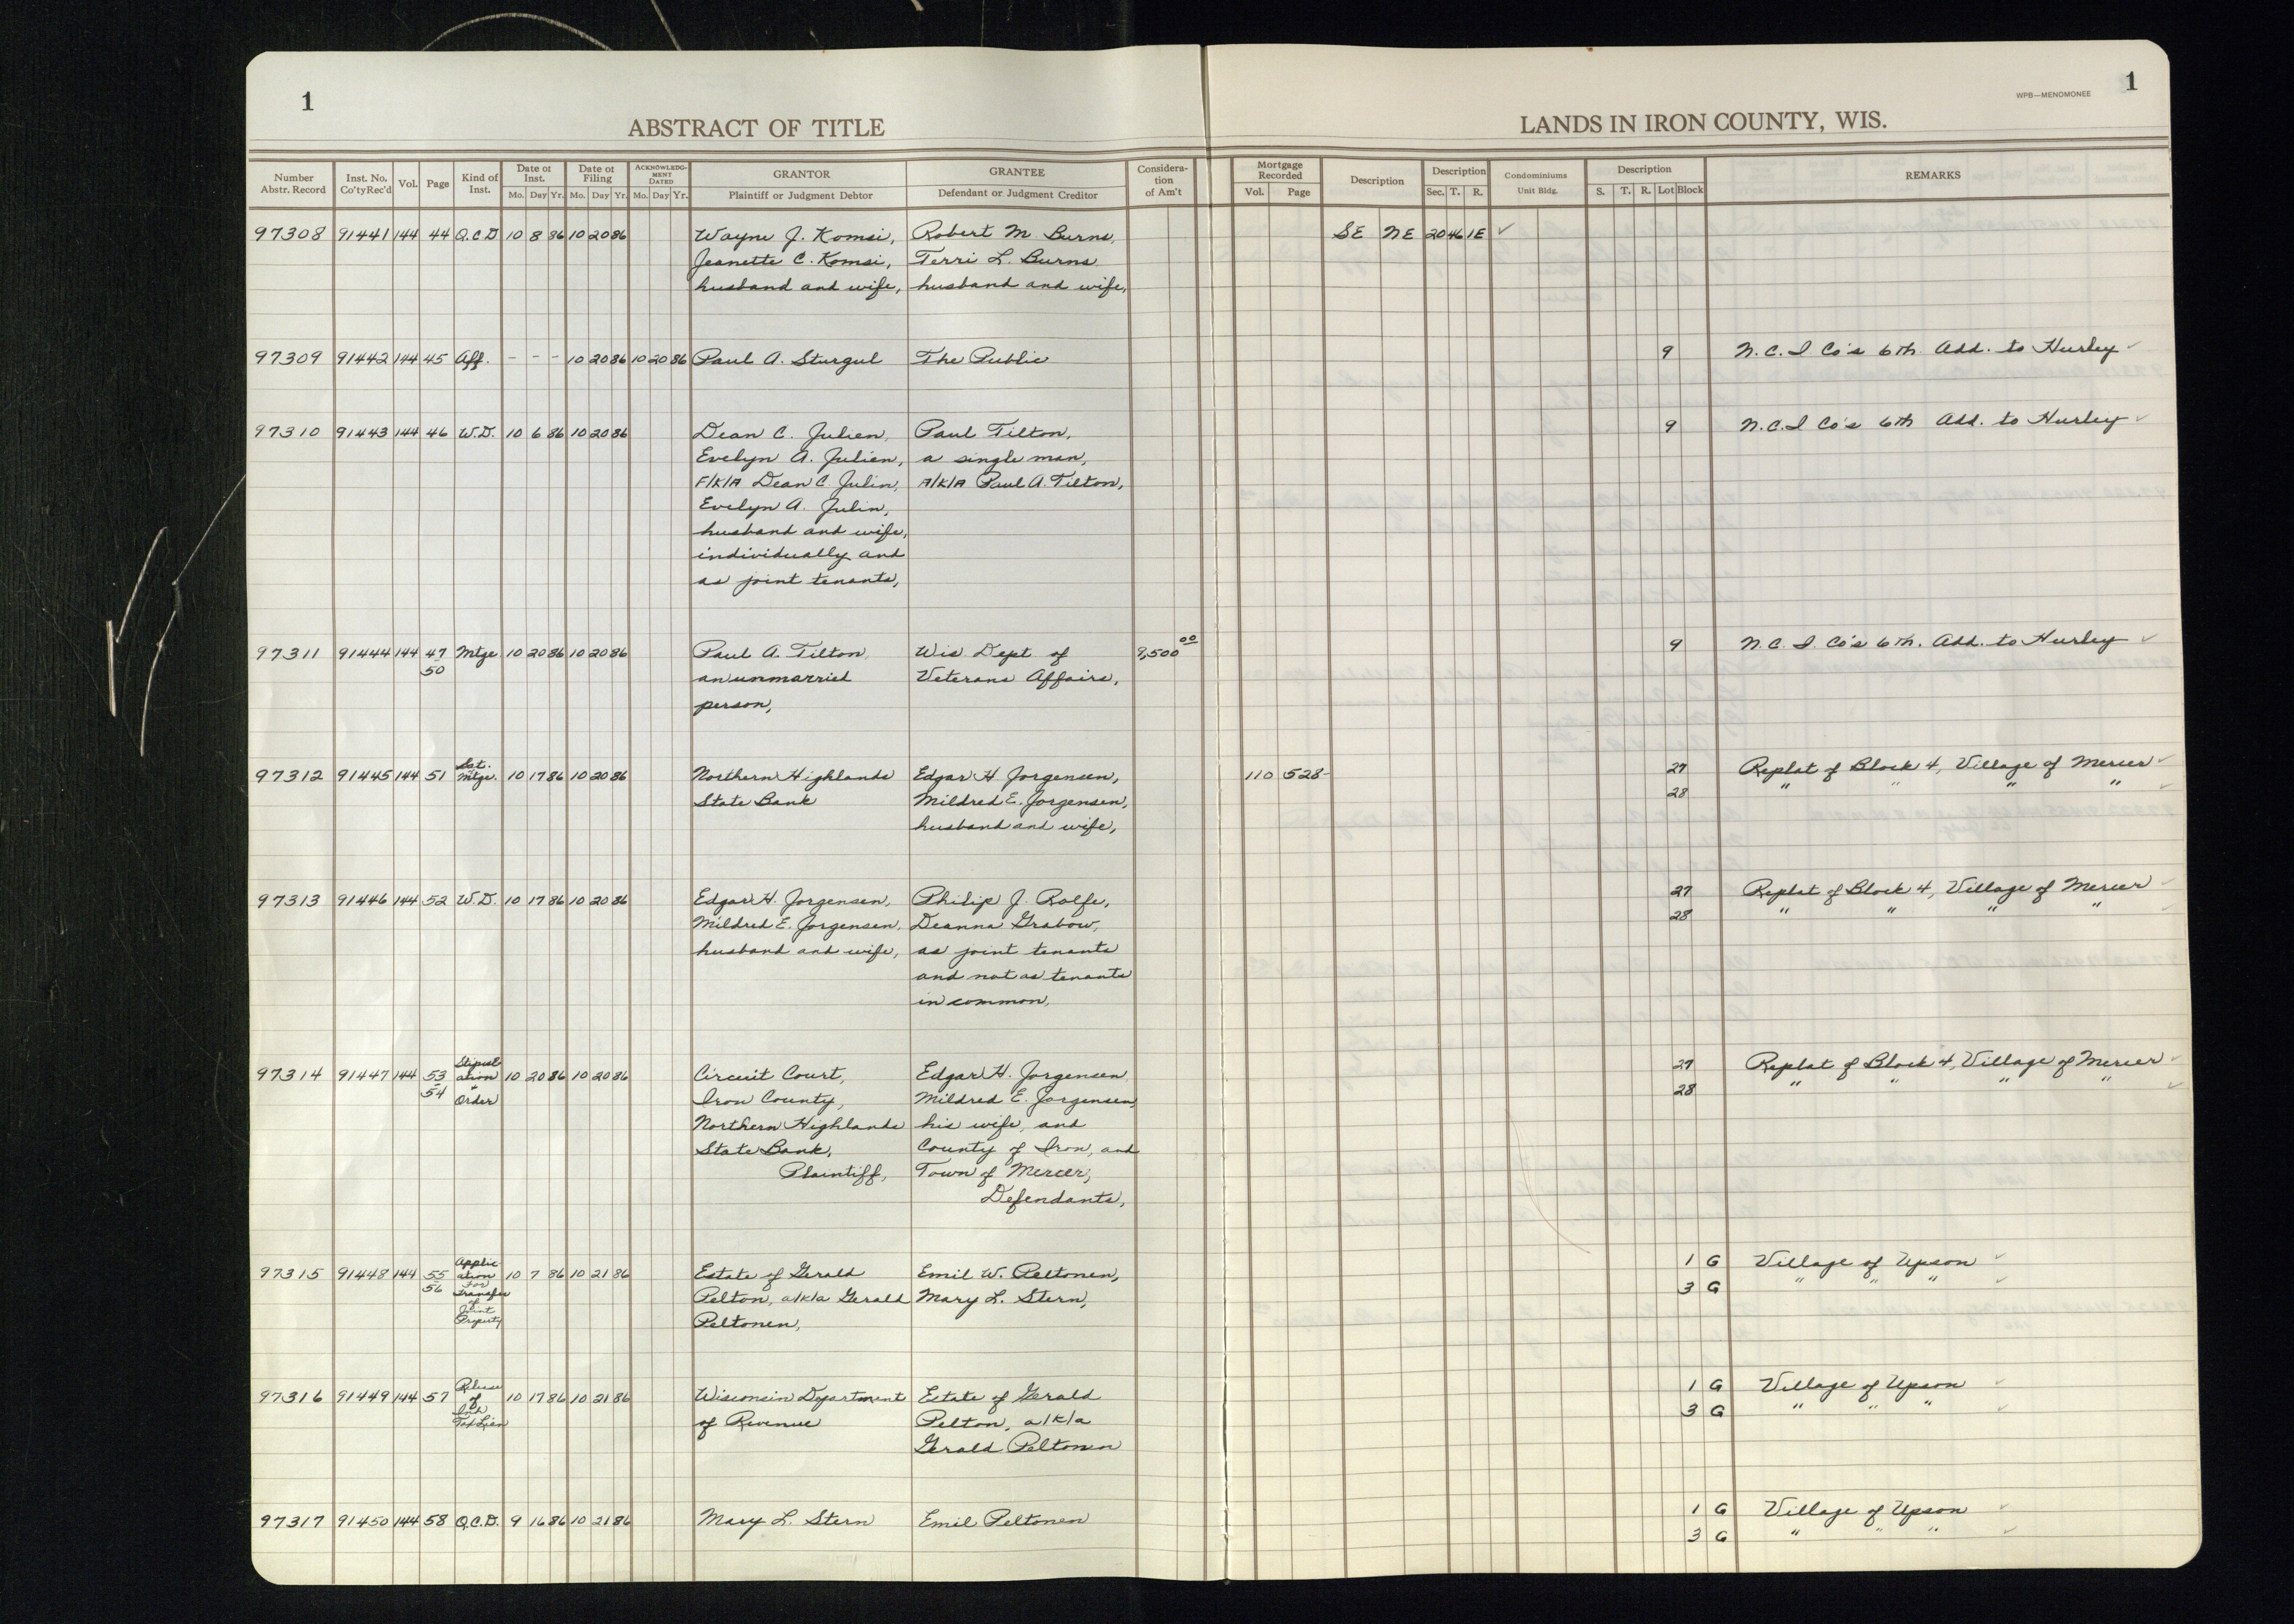 1
ABSTRACT OF TITLE
LANDS IN IRON COUNTY, WIS.
WPB—MENOMONEE
1
Number Abstr. Record
Inst. No. Co'ty Rec'd
Vol.
Page
Kind of Inst.
Date of Inst.
Mo. Day Yr.
Date of Filing
Mo. Day Yr.
ACKNOWLEDGMENT DATED
Mo. Day Yr.
GRANTOR
Plaintiff or Judgment Debtor
GRANTEE
Defendant or Judgment Creditor
Consideration of Am't
Mortgage Recorded
Vol. Page
Description
Description
Sec. T. R.
Condominiums
Unit Bldg.
Description
S. T. R. Lot Block
REMARKS
97308 91441 144 44 Q.C.D 10 8 86 10 20 86 Wayne J. Komsi, Robert M Burns, SE NE 20 46 1E ✓
Jeanette C. Komsi, Terri L. Burns
husband and wife, husband and wife,
97309 91442 144 45 Aff. - - - 10 20 86 10 20 86 Paul A. Sturgul The Public 9 N.C.I Co's 6th Add. to Hurley ✓
97310 91443 144 46 W.D. 10 6 86 10 20 86 Dean C. Julien, Paul Tilton, 9 N.C.I Co's 6th Add. to Hurley ✓
Evelyn A. Julien, a single man,
F/K/A Dean C. Julin, A/K/A Paul A. Tilton,
Evelyn A. Julin,
husband and wife,
individually and
as joint tenants,
97311 91444 144 47 Mtge 10 20 86 10 20 86 Paul A. Tilton, Wis Dept of 9,500 00 9 N.C.I. Co's 6th. Add. to Hurley ✓
50 an unmarried Veterans Affairs,
person,
97312 91445 144 51 Sat. Mtge. 10 17 86 10 20 86 Northern Highlands Edgar H Jorgensen, 110 528 27 Replat of Block 4, Village of Mercer ✓
State Bank Mildred E. Jorgensen, 28 " " " " ✓
husband and wife,
97313 91446 144 52 W.D. 10 17 86 10 20 86 Edgar H. Jorgensen, Philip J. Rolfe, 27 Replat of Block 4, Village of Mercer ✓
Mildred E. Jorgensen, Deanna Grabow, 28 " " " " ✓
husband and wife, as joint tenants
and not as tenants
in common,
97314 91447 144 53 Stipulation & Order 10 20 86 10 20 86 Circuit Court, Edgar H. Jorgensen 27 Replat of Block 4, Village of Mercer ✓
54 Iron County, Mildred E. Jorgensen, 28 " " " " ✓
Northern Highlands his wife, and
State Bank, County of Iron, and
Plaintiff, Town of Mercer,
Defendants,
97315 91448 144 55 Application For Transfer of Joint Property 10 7 86 10 21 86 Estate of Gerald Emil W. Peltonen, 1 G Village of Upson ✓
56 Pelton, a/k/a Gerald Mary L. Stern, 3 G " " " ✓
Peltonen,
97316 91449 144 57 Release of Inh Tax Lien 10 17 86 10 21 86 Wisconsin Department Estate of Gerald 1 G Village of Upson ✓
of Revenue Pelton, a/k/a 3 G " " " ✓
Gerald Peltonen
97317 91450 144 58 Q.C.D. 9 16 86 10 21 86 Mary L. Stern Emil Peltonen 1 G Village of Upson ✓
3 G " " " ✓